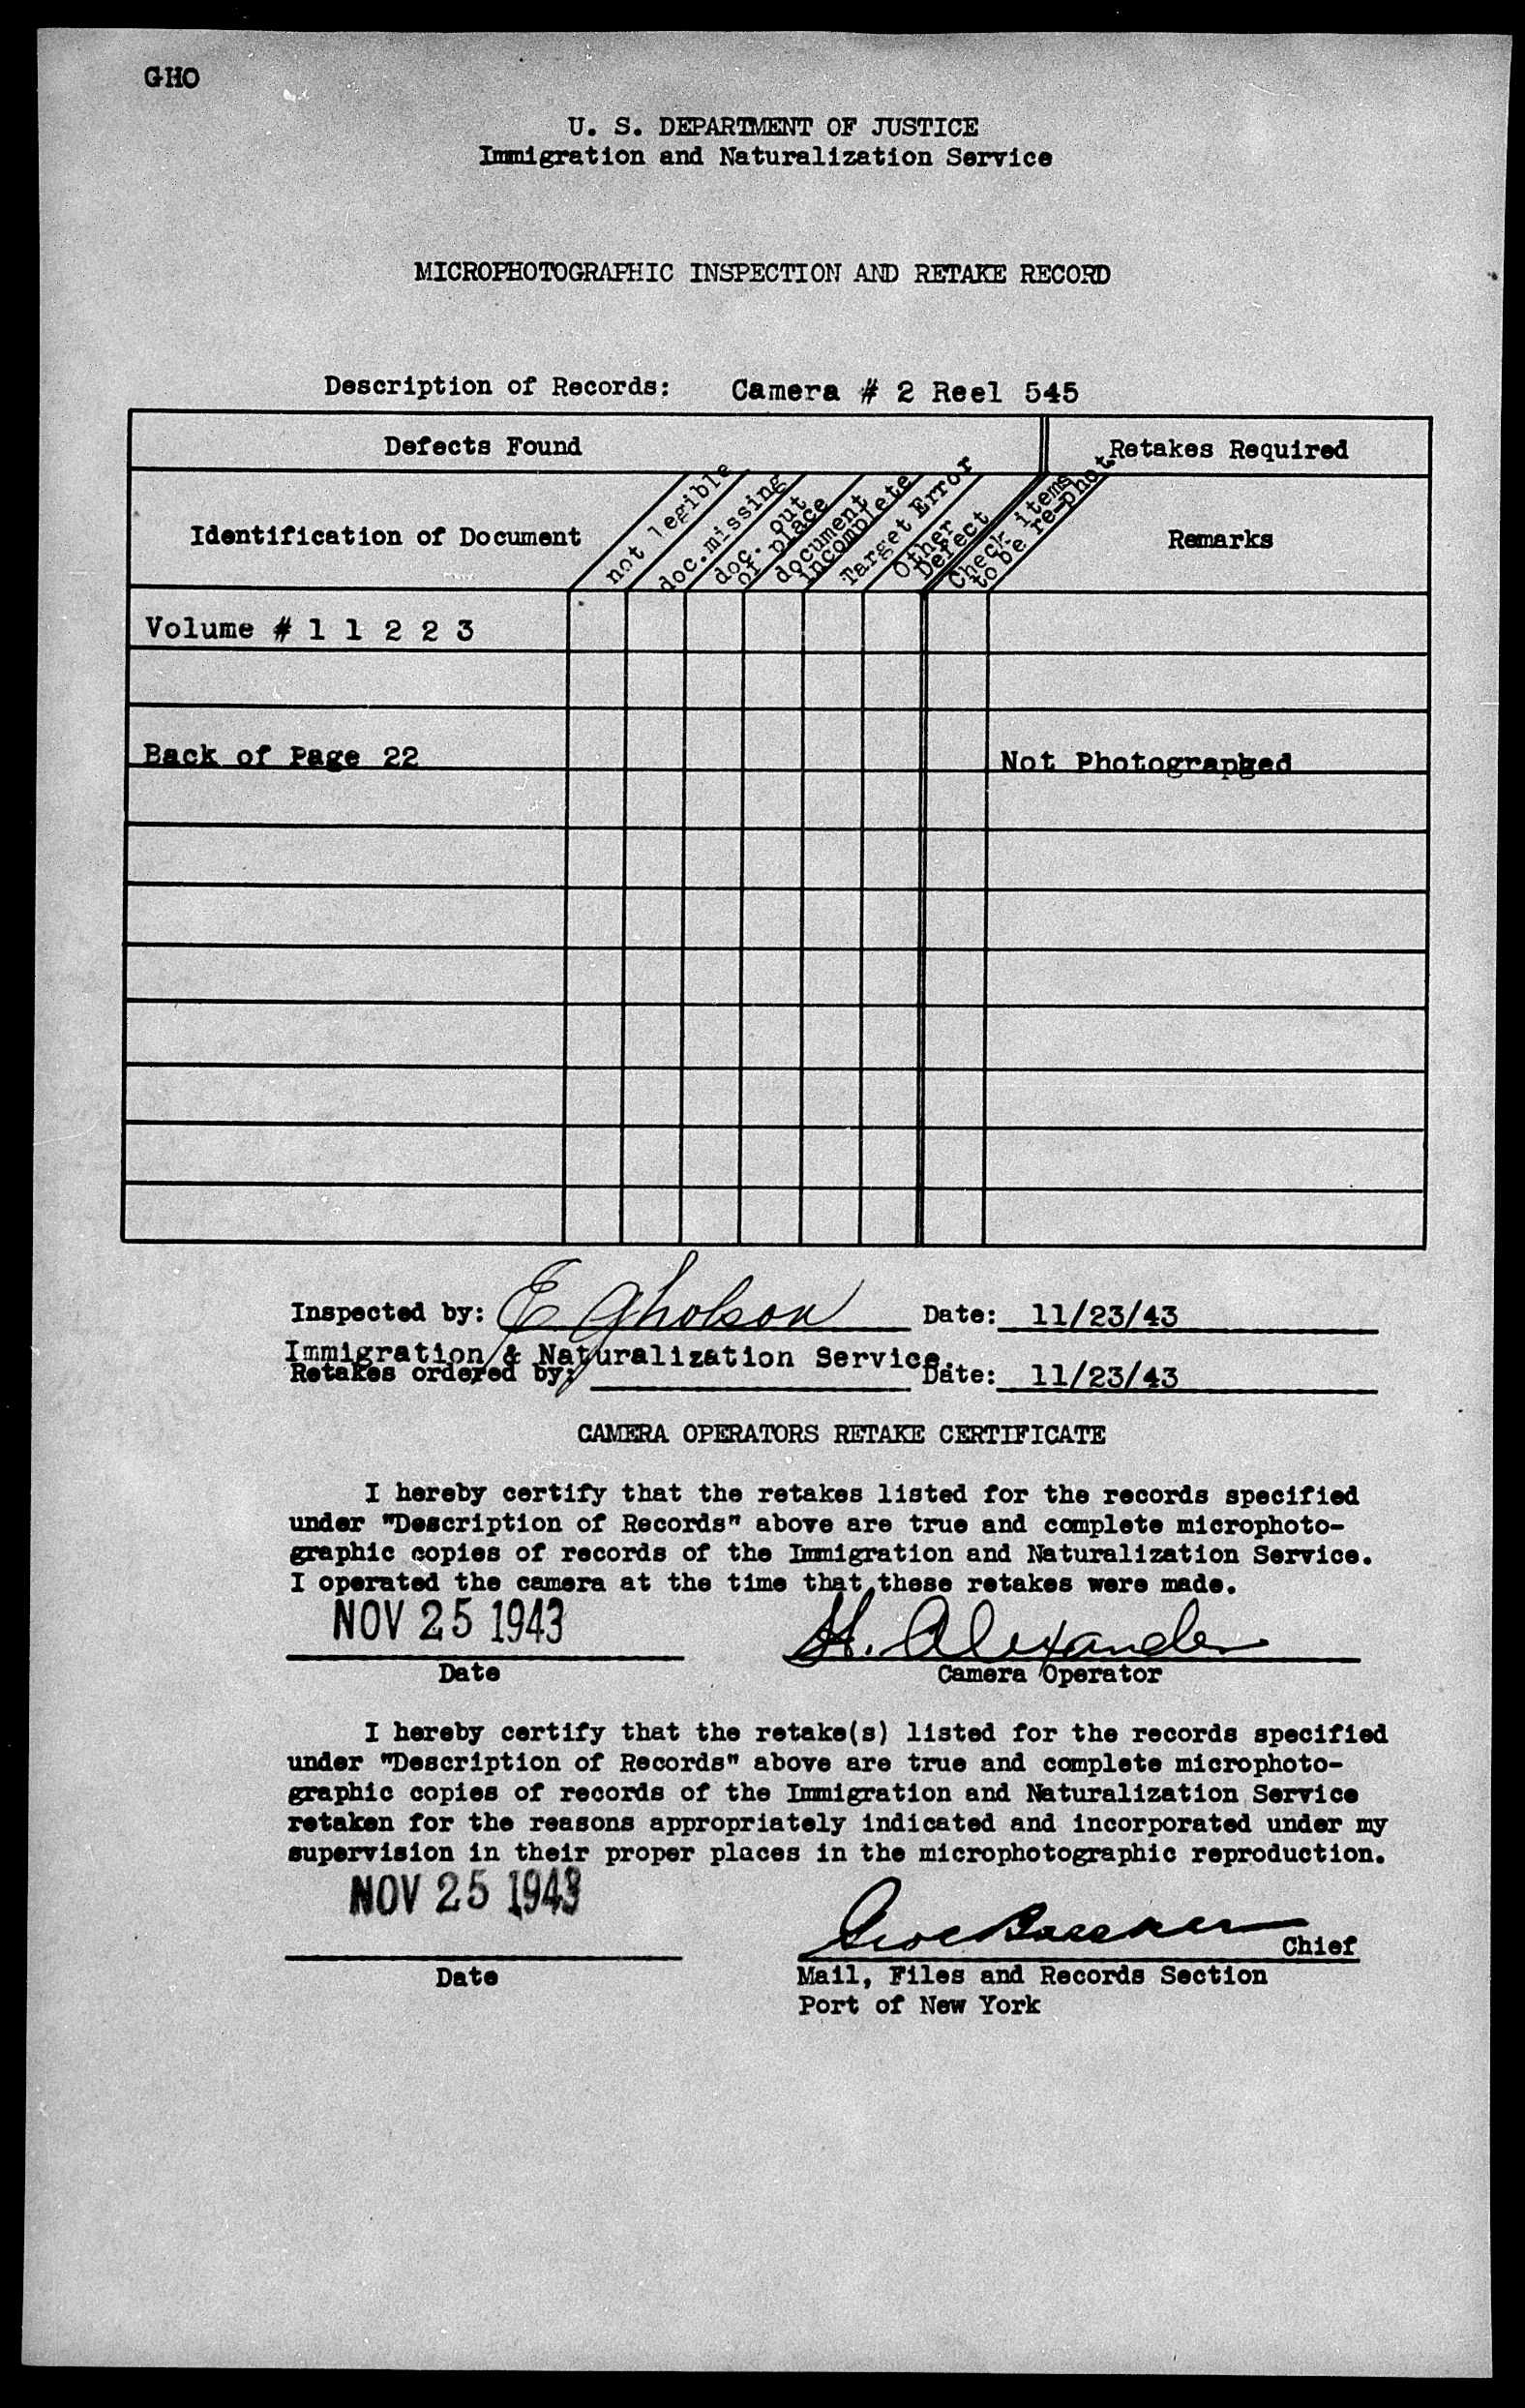 GHO
U. S. DEPARTMENT OF JUSTICE
Immigration and Naturalization Service
MICROPHOTOGRAPHIC INSPECTION AND RETAKE RECORD
Description of Records: Camera # 2 Reel 545
Defects Found
Retakes Required
Identification of Document
not legible
doc.missing
doc. out
of place
document
incomplete
Target Error
Other
Defect
Check items
to be re-phot.
Remarks
Volume # 1 1 2 2 3
Back of Page 22 Not Photographed
Inspected by: E Gholson Date: 11/23/43
Immigration & Naturalization Service.
Retakes ordered by: Date: 11/23/43
CAMERA OPERATORS RETAKE CERTIFICATE
I hereby certify that the retakes listed for the records specified
under "Description of Records" above are true and complete microphoto-
graphic copies of records of the Immigration and Naturalization Service.
I operated the camera at the time that these retakes were made.
NOV 25 1943 H. Alexander
Date Camera Operator
I hereby certify that the retake(s) listed for the records specified
under "Description of Records" above are true and complete microphoto-
graphic copies of records of the Immigration and Naturalization Service
retaken for the reasons appropriately indicated and incorporated under my
supervision in their proper places in the microphotographic reproduction.
NOV 25 1943
Chief
Date Mail, Files and Records Section
Port of New York